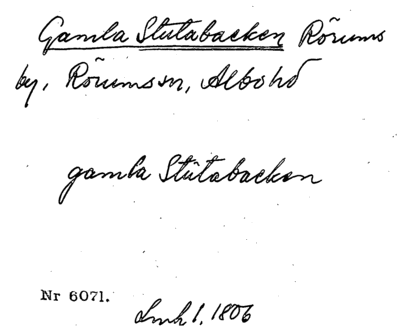 Gamla Stutabacken Rörums
by, Rörums sn, Albo hd
gamla Stutabacken
Nr 6071.
Lmh 1, 1806